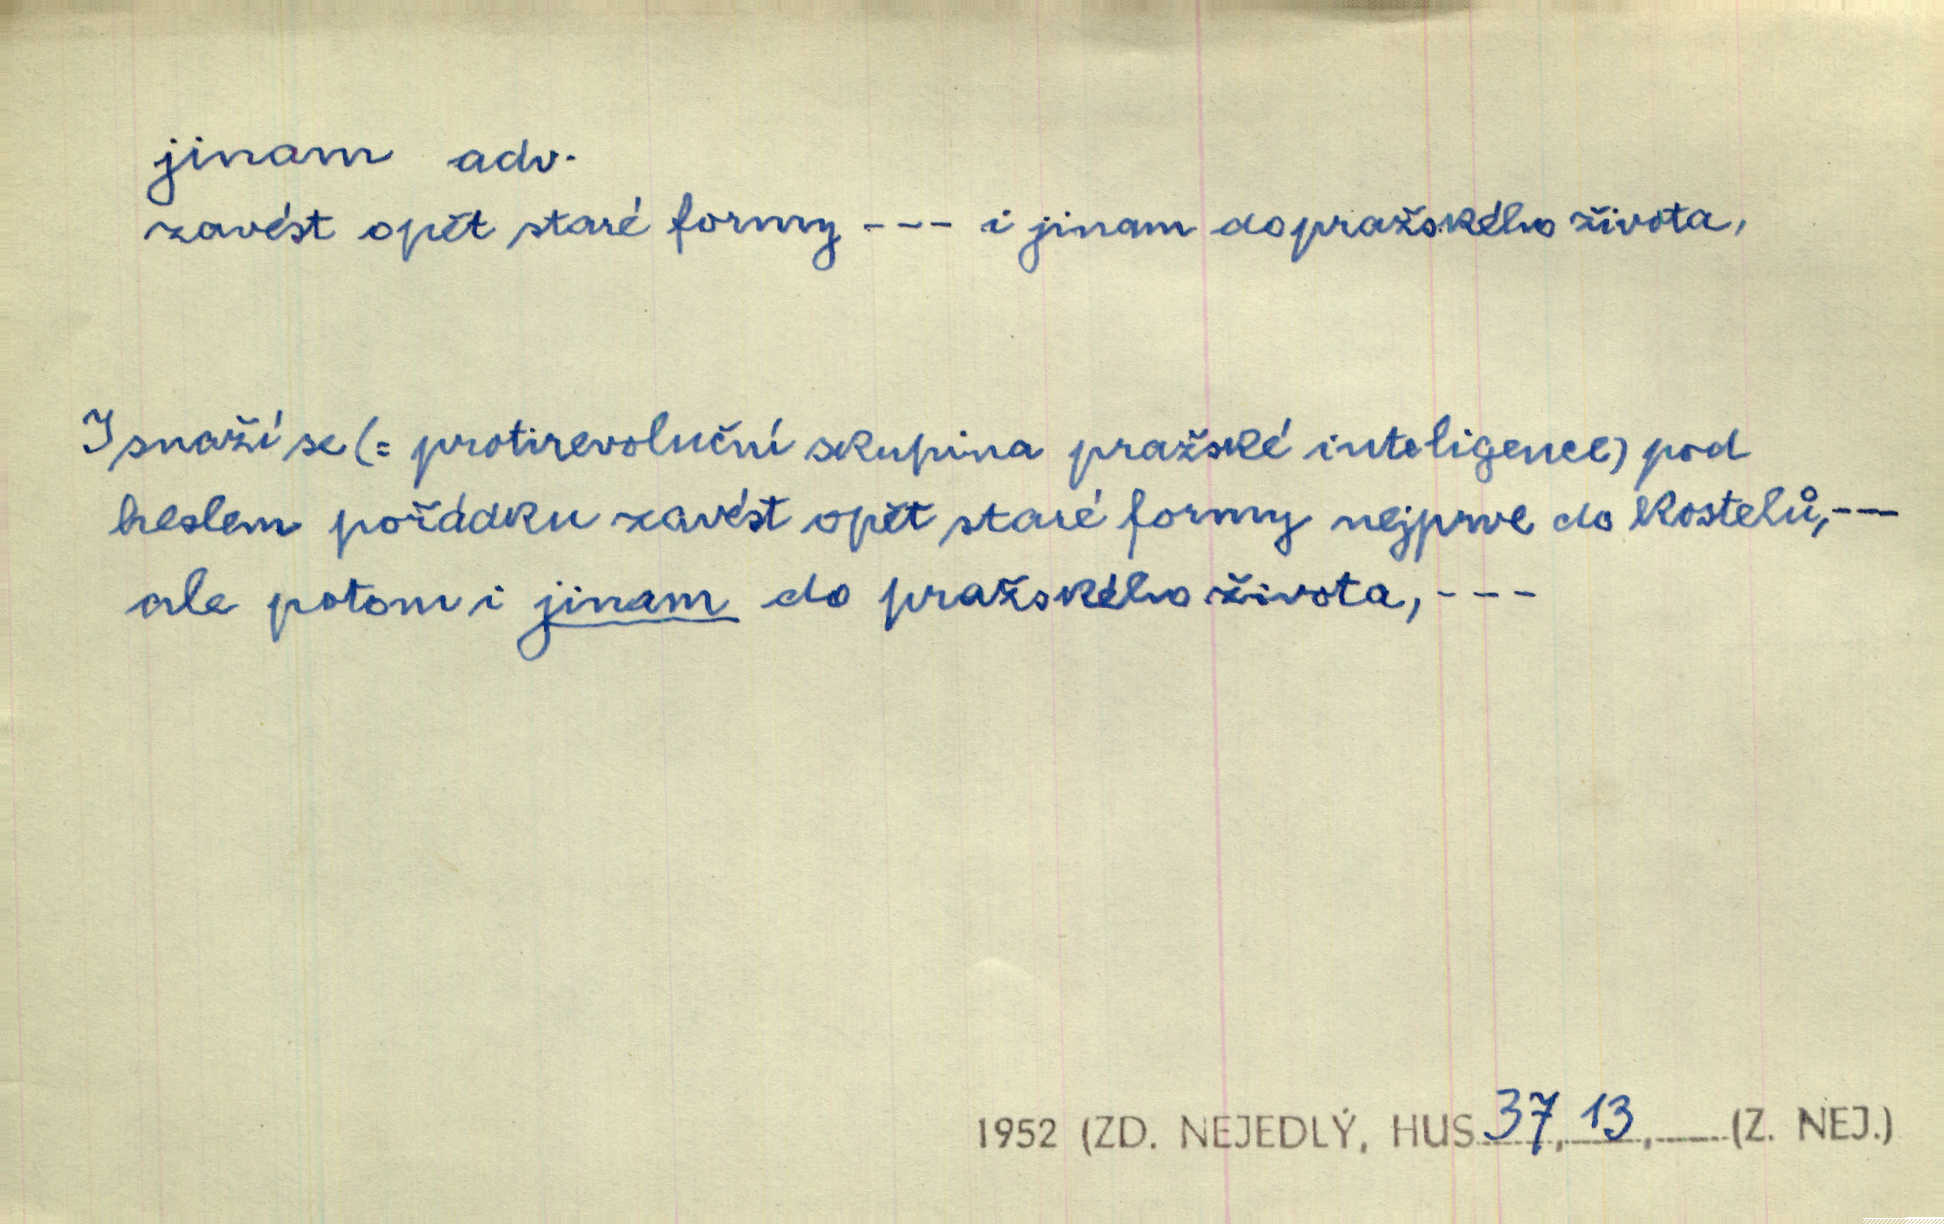 jinam adv.
zavést opět staré formy --- i jinam do pražského života,
I snaží se (= protirevoluční skupina pražské inteligence) pod
heslem pořádku zavést opět staré formy nejprve do kostelů, ---
ale potom i jinam do pražského života, ---
1952 (ZD. NEJEDLÝ, HUS 37, 13, (Z. NEJ.)